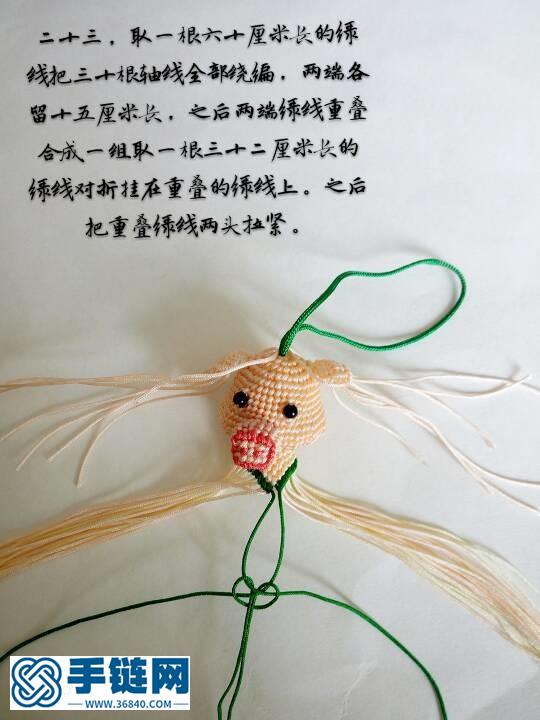 二十三，取一根六十厘米长的绿
线把三十根轴线全部绕编，两端各
留十五厘米长，之后两端绿线重叠
合成一组取一根三十二厘米长的
绿线对折挂在重叠的绿线上。之后
把重叠绿线两头拉紧。
手链网
WWW.36840.COM